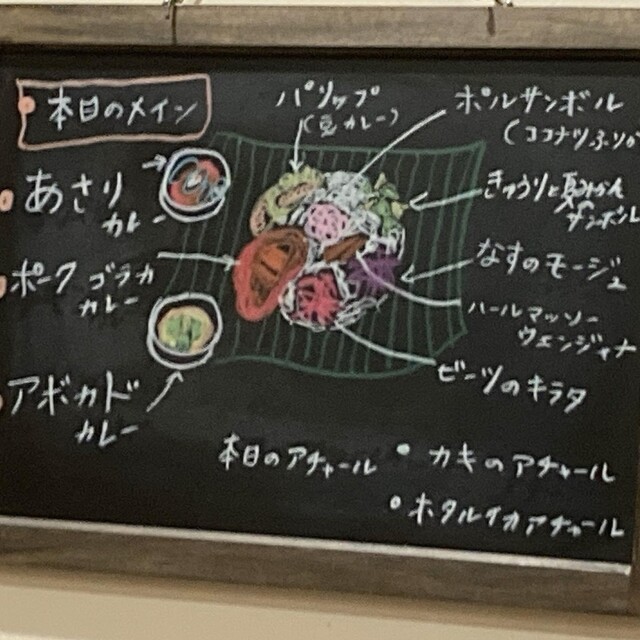 本日のメイン
あさり
カレー
ポーク ゴラカ
カレー
アボカド
カレー
パリップ
(豆カレー)
ポルサンボル
(ココナツふりか
きゅうりと夏みかん
サンボル
なすのモージュ
ハールマッソー
ウェンジャナ
ビーツのキラタ
本日のアチャール
・カキのアチャール
・ホタルイカアチャール